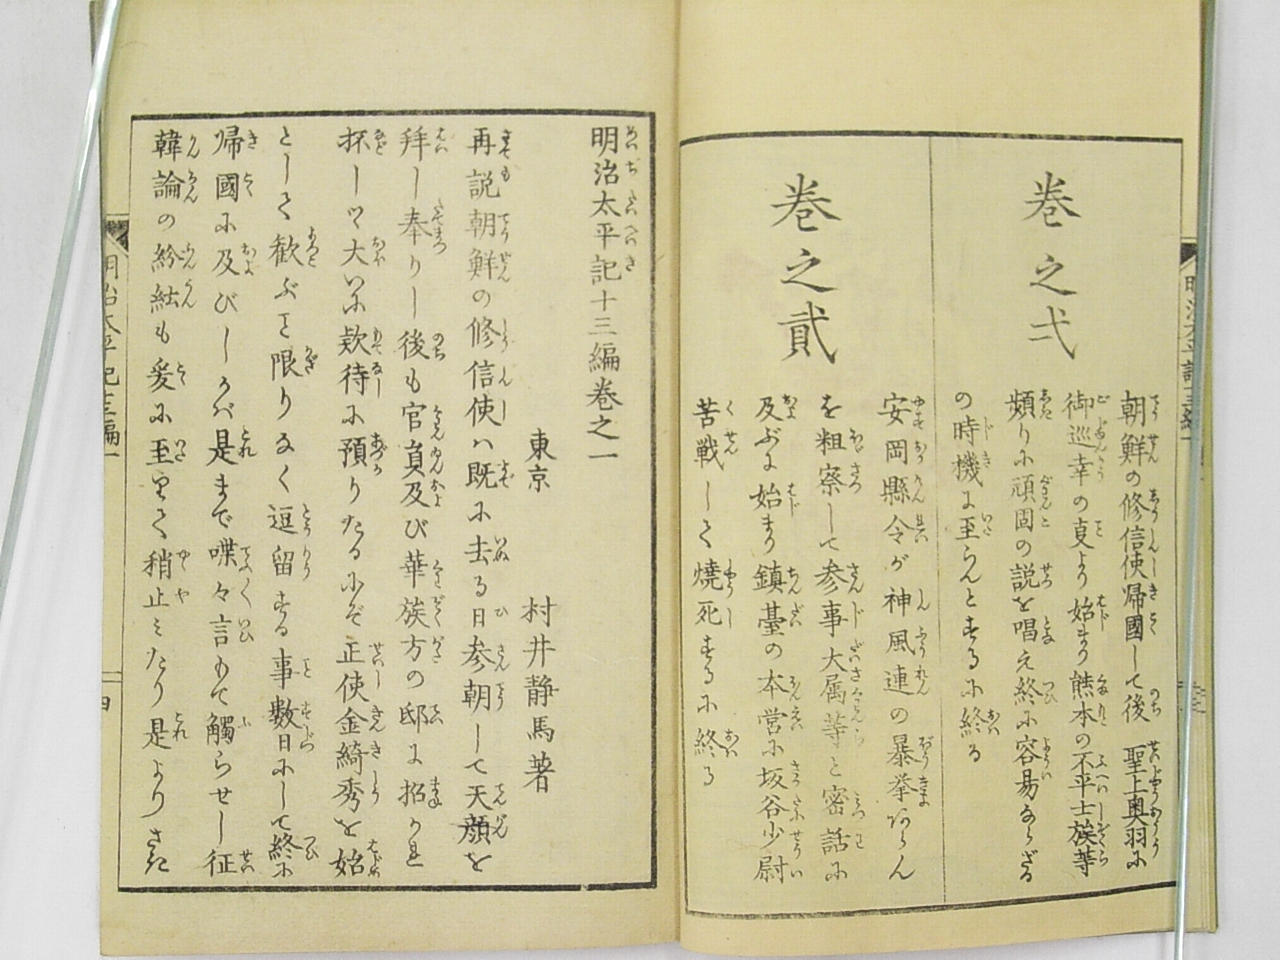 巻之弌
朝鮮の修信使帰國して後 聖上奥羽に
御巡幸の事より始まり熊本の不平士族等
頻りに頑固の説を唱え終に容易ならざる
の時機に至らんとする に終る
巻之貳
安岡縣令が神風連の暴挙あらん
を粗察して参事大属等と密話に
及ぶに始まり鎮臺の本営に坂谷少尉
苦戦して焼死するに終る
明治太平記十三編巻之一
東京 村井静馬著
再説朝鮮の修信使ハ既に去る日参朝して天顔を
拝し奉りし後も官員及び華族方の邸に招かれ
抔しツ大いに欵待に預りたるにぞ正使金綺秀を始
として歓ぶこと限りなく逗留する事数日にして終に
帰國に及びしかバ是まで喋々言もて觸らせし征
韓論の紛紜も爰に至りて稍止ミたり是よりさき
明治太平記十三編一
四